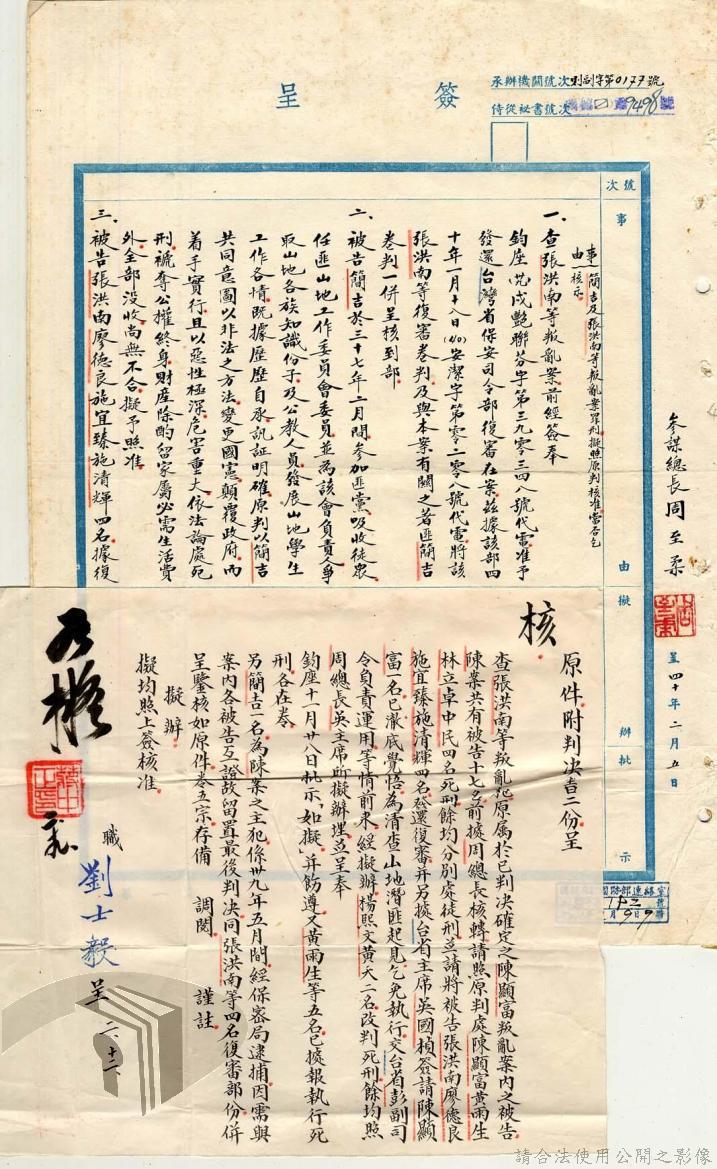 簽呈
承辦機關號次 則副字第0177號
侍從祕書號次 9498號
號次
事由擬辦批示
參謀總長周至柔 呈四十年二月五日
事由 簡吉及張洪南等叛亂案罪刑擬照原判核准當否乞核示
一、查張洪南等叛亂案前經簽奉
鈞座 戌艷聯芬字第三九零三四八號代電准予
發還台灣省保安司令部復審在案茲據該部四
十年一月十八日(40)安潔字第零二零八號代電將該
張洪南等復審卷判及與本案有關之著匪簡吉
卷判一併呈核到部
二、被告簡吉於三十七年二月間參加匪黨吸收徒眾
任匪山地工作委員會委員並為該會負責人爭
取山地各族知識份子及公教人員發展山地學生
工作各情既據歷歷自承訊証明確原判以簡吉
共同意圖以非法之方法變更國憲顛覆政府而
着手實行且以惡性極深危害重大依法論處死
刑褫奪公權終身財產除酌留家屬必需生活費
外全部沒收尚無不合擬予照准
三、被告張洪南廖德良施宜臻施清輝四名據復
核
原件附判決書二份呈
查張洪南等叛亂犯原屬於已判決確定之陳顯富叛亂案內之被告
陳案共有被告十七名前據周總長核轉請照原判處陳顯富黃雨生
林立卓中民四名死刑餘均分別處徒刑並請將被告張洪南廖德良
施宜臻施清輝四名發還復審并另據台省主席吳國楨簽請陳顯
富一名已澈底覺悟為清查山地潛匪起見乞免執行交台省彭副司
令負責運用等情前來經擬辦楊熙文黃天二名改判死刑餘均照
周總長吳主席所擬辦理並呈奉
鈞座十一月廿八日批示「如擬」并飭遵又黃雨生等五名已據報執行死
刑各在卷
另簡吉一名為陳案之主犯係卅九年五月間經保密局逮捕因需與
案內各被告互證故留置最後判決同張洪南等四名復審部份併
呈鑒核如原件卷五宗存備 調閱 謹註
擬辦
擬均照上簽核准
職 劉士毅 呈 二、十二、
如擬
請合法使用公開之影像